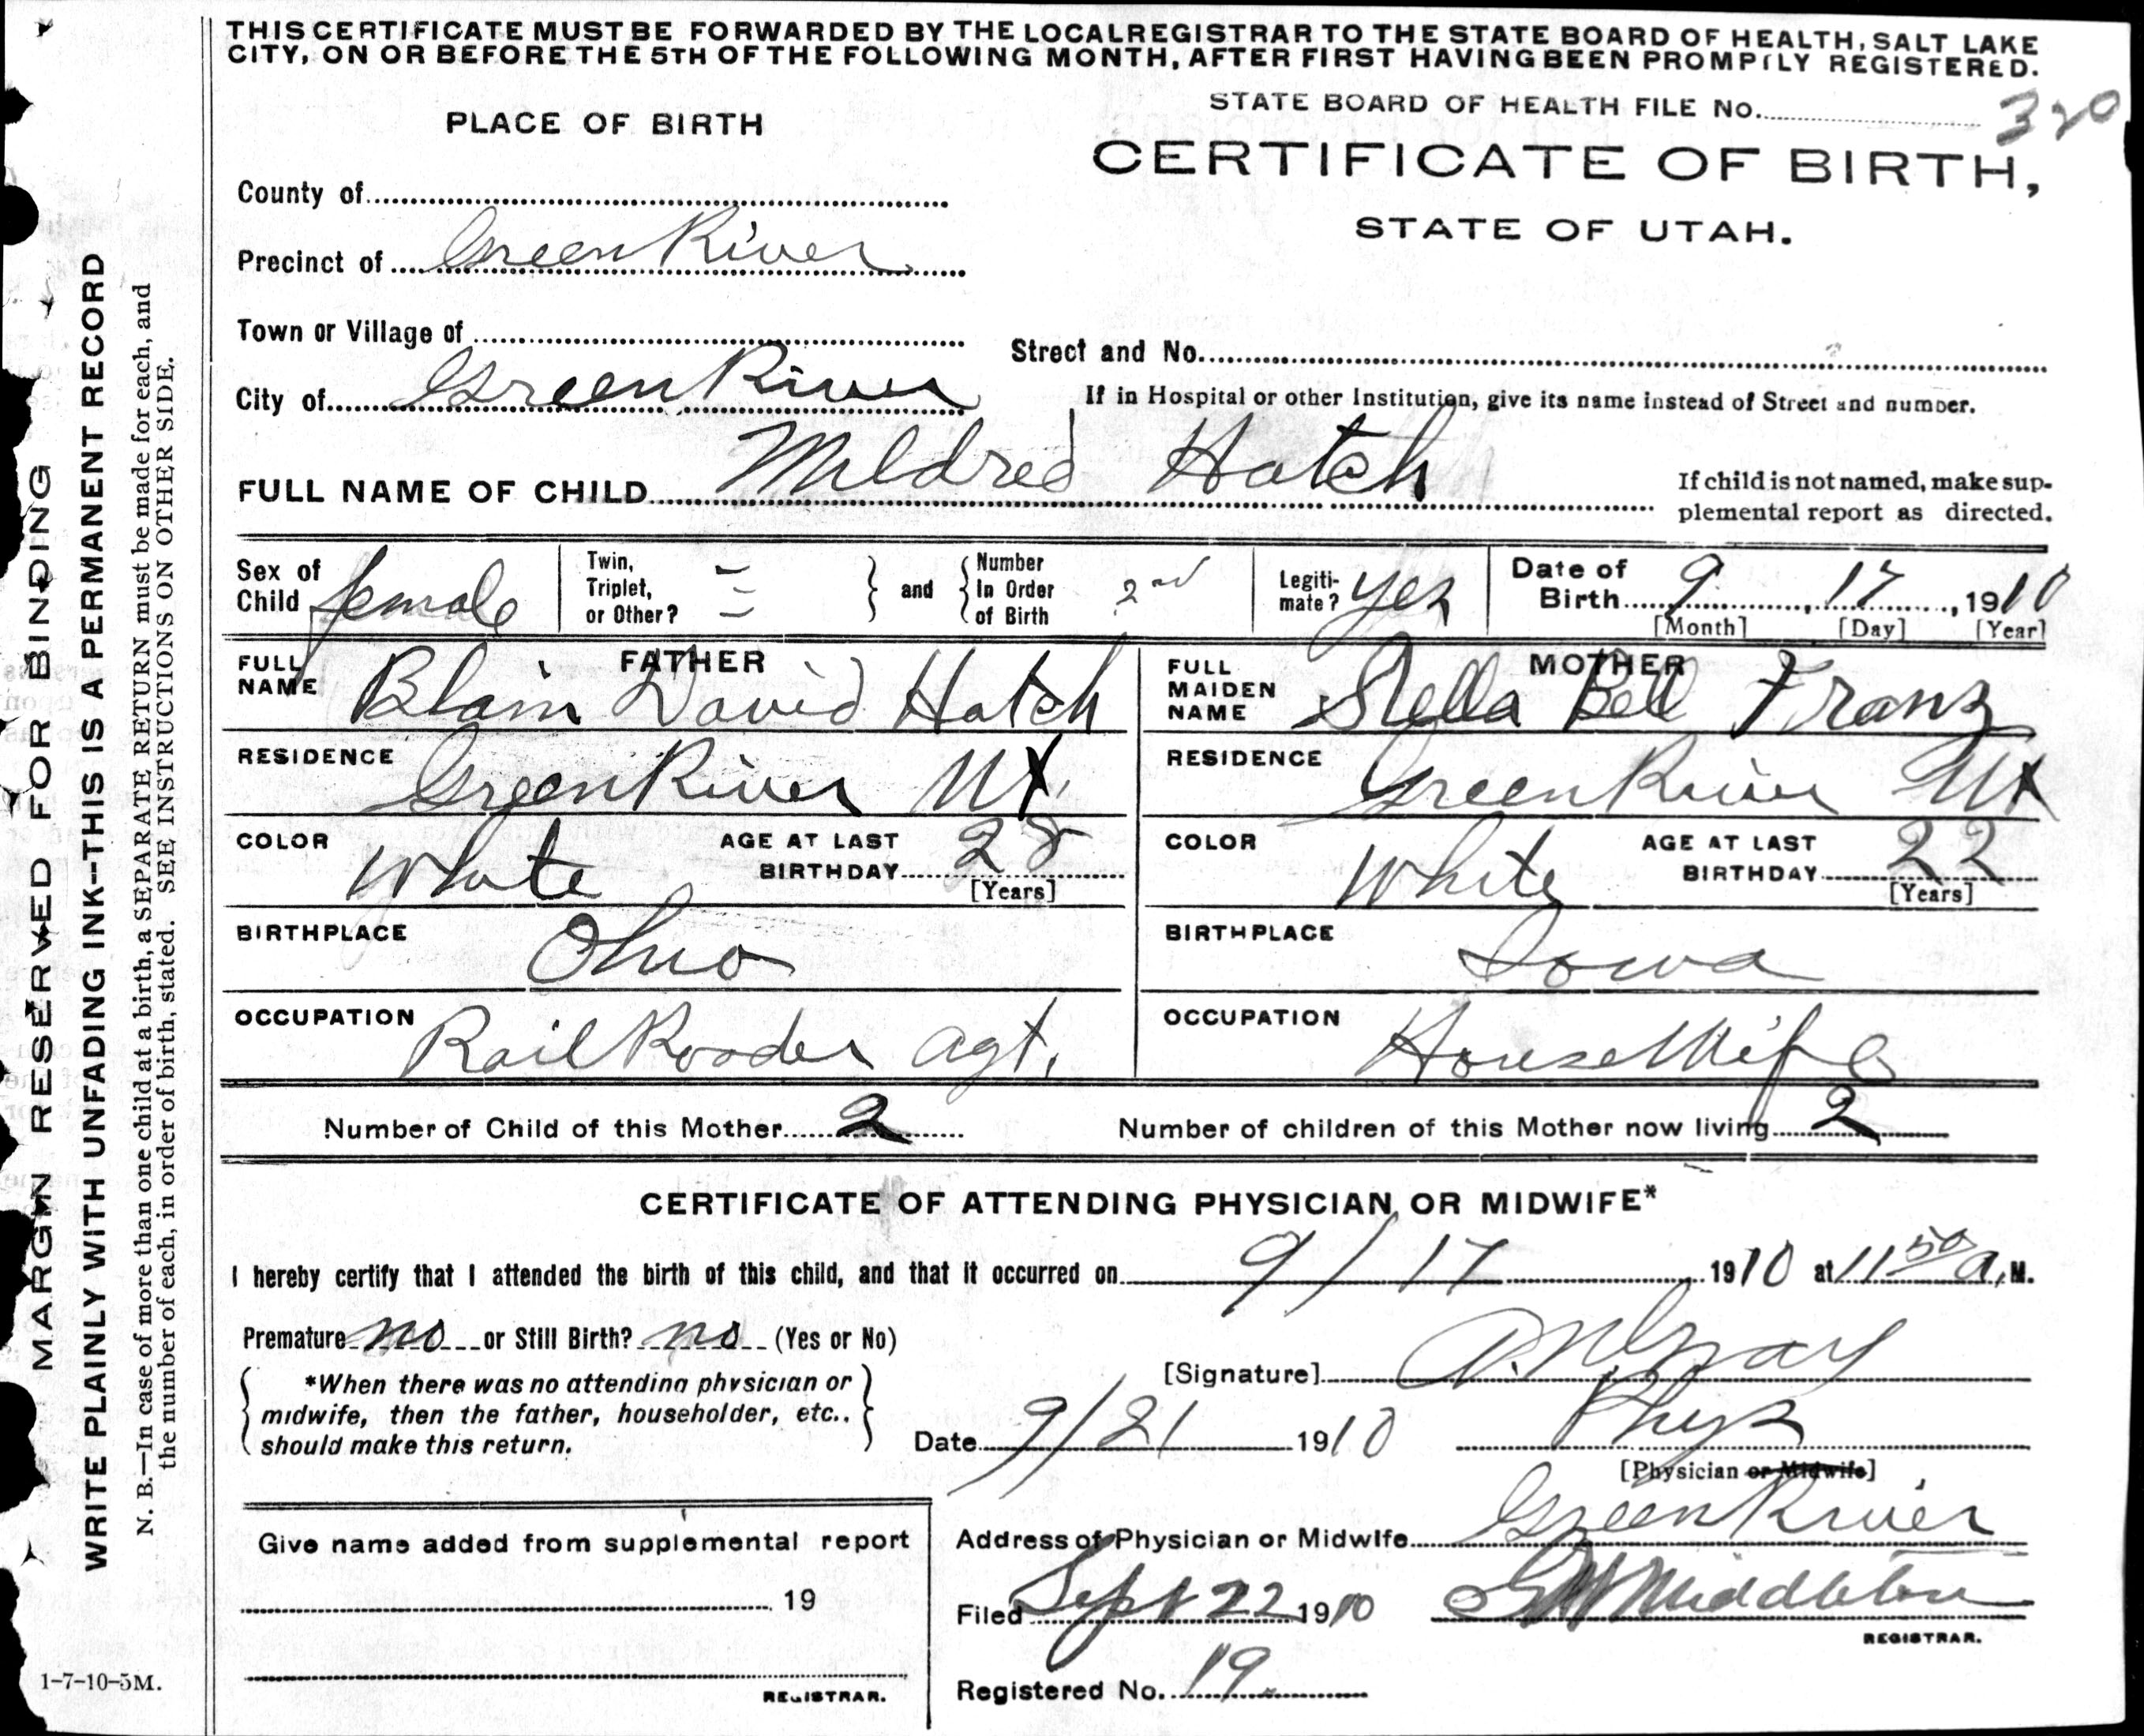 THIS CERTIFICATE MUST BE FORWARDED BY THE LOCAL REGISTRAR TO THE STATE BOARD OF HEALTH, SALT LAKE
CITY, ON OR BEFORE THE 5TH OF THE FOLLOWING MONTH, AFTER FIRST HAVING BEEN PROMPTLY REGISTERED.
STATE BOARD OF HEALTH FILE No. 320
PLACE OF BIRTH
CERTIFICATE OF BIRTH,
STATE OF UTAH.
County of
Precinct of Green River
Town or Village of
Street and No.
City of Green River
If in Hospital or other Institution, give its name instead of Street and number.
FULL NAME OF CHILD Mildred Hatch
If child is not named, make sup-
plemental report as directed.
Sex of Child female
Twin, Triplet, or Other? =
and
Number In Order of Birth 2nd
Legiti-mate? yes
Date of Birth 9, 17, 1910
[Month] [Day] [Year]
FATHER
FULL NAME Blain David Hatch
MOTHER
FULL MAIDEN NAME Stella Bell Franz
RESIDENCE Green River Ut.
RESIDENCE Green River Ut
COLOR White
AGE AT LAST BIRTHDAY 28
[Years]
COLOR White
AGE AT LAST BIRTHDAY 22
[Years]
BIRTHPLACE Ohio
BIRTHPLACE Iowa
OCCUPATION Rail Roader agt.
OCCUPATION House Wife
Number of Child of this Mother 2
Number of children of this Mother now living 2
CERTIFICATE OF ATTENDING PHYSICIAN OR MIDWIFE*
I hereby certify that I attended the birth of this child, and that it occurred on 9/17 1910 at 11 50 a. M.
Premature no or Still Birth? no (Yes or No)
[Signature]
*When there was no attending physician or
midwife, then the father, householder, etc.,
should make this return.
Date 9/21 1910
Phys
[Physician or Midwife]
Give name added from supplemental report
19
REGISTRAR.
Address of Physician or Midwife Green River
Filed Sept 22 1910 Middleton
REGISTRAR.
Registered No. 19
1-7-10-5M.
MARGIN RESERVED FOR BINDING
WRITE PLAINLY WITH UNFADING INK--THIS IS A PERMANENT RECORD
N. B.—In case of more than one child at a birth, a SEPARATE RETURN must be made for each, and
the number of each, in order of birth, stated. SEE INSTRUCTIONS ON OTHER SIDE.